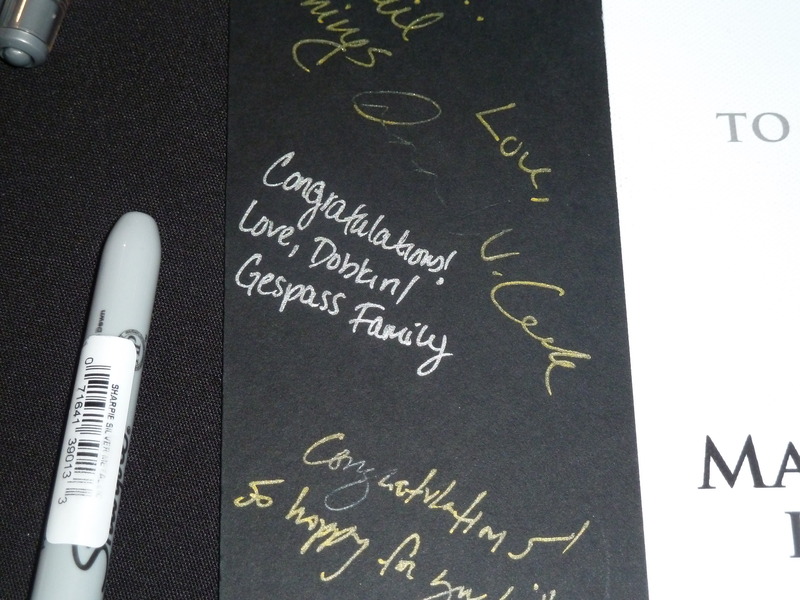 Love,
Congratulations!
Love, Dobkin/
Gespass Family
Congratulations!
So happy for you!
TO
MA
SHARPIE SILVER METALLIC
0 71641 39013 3